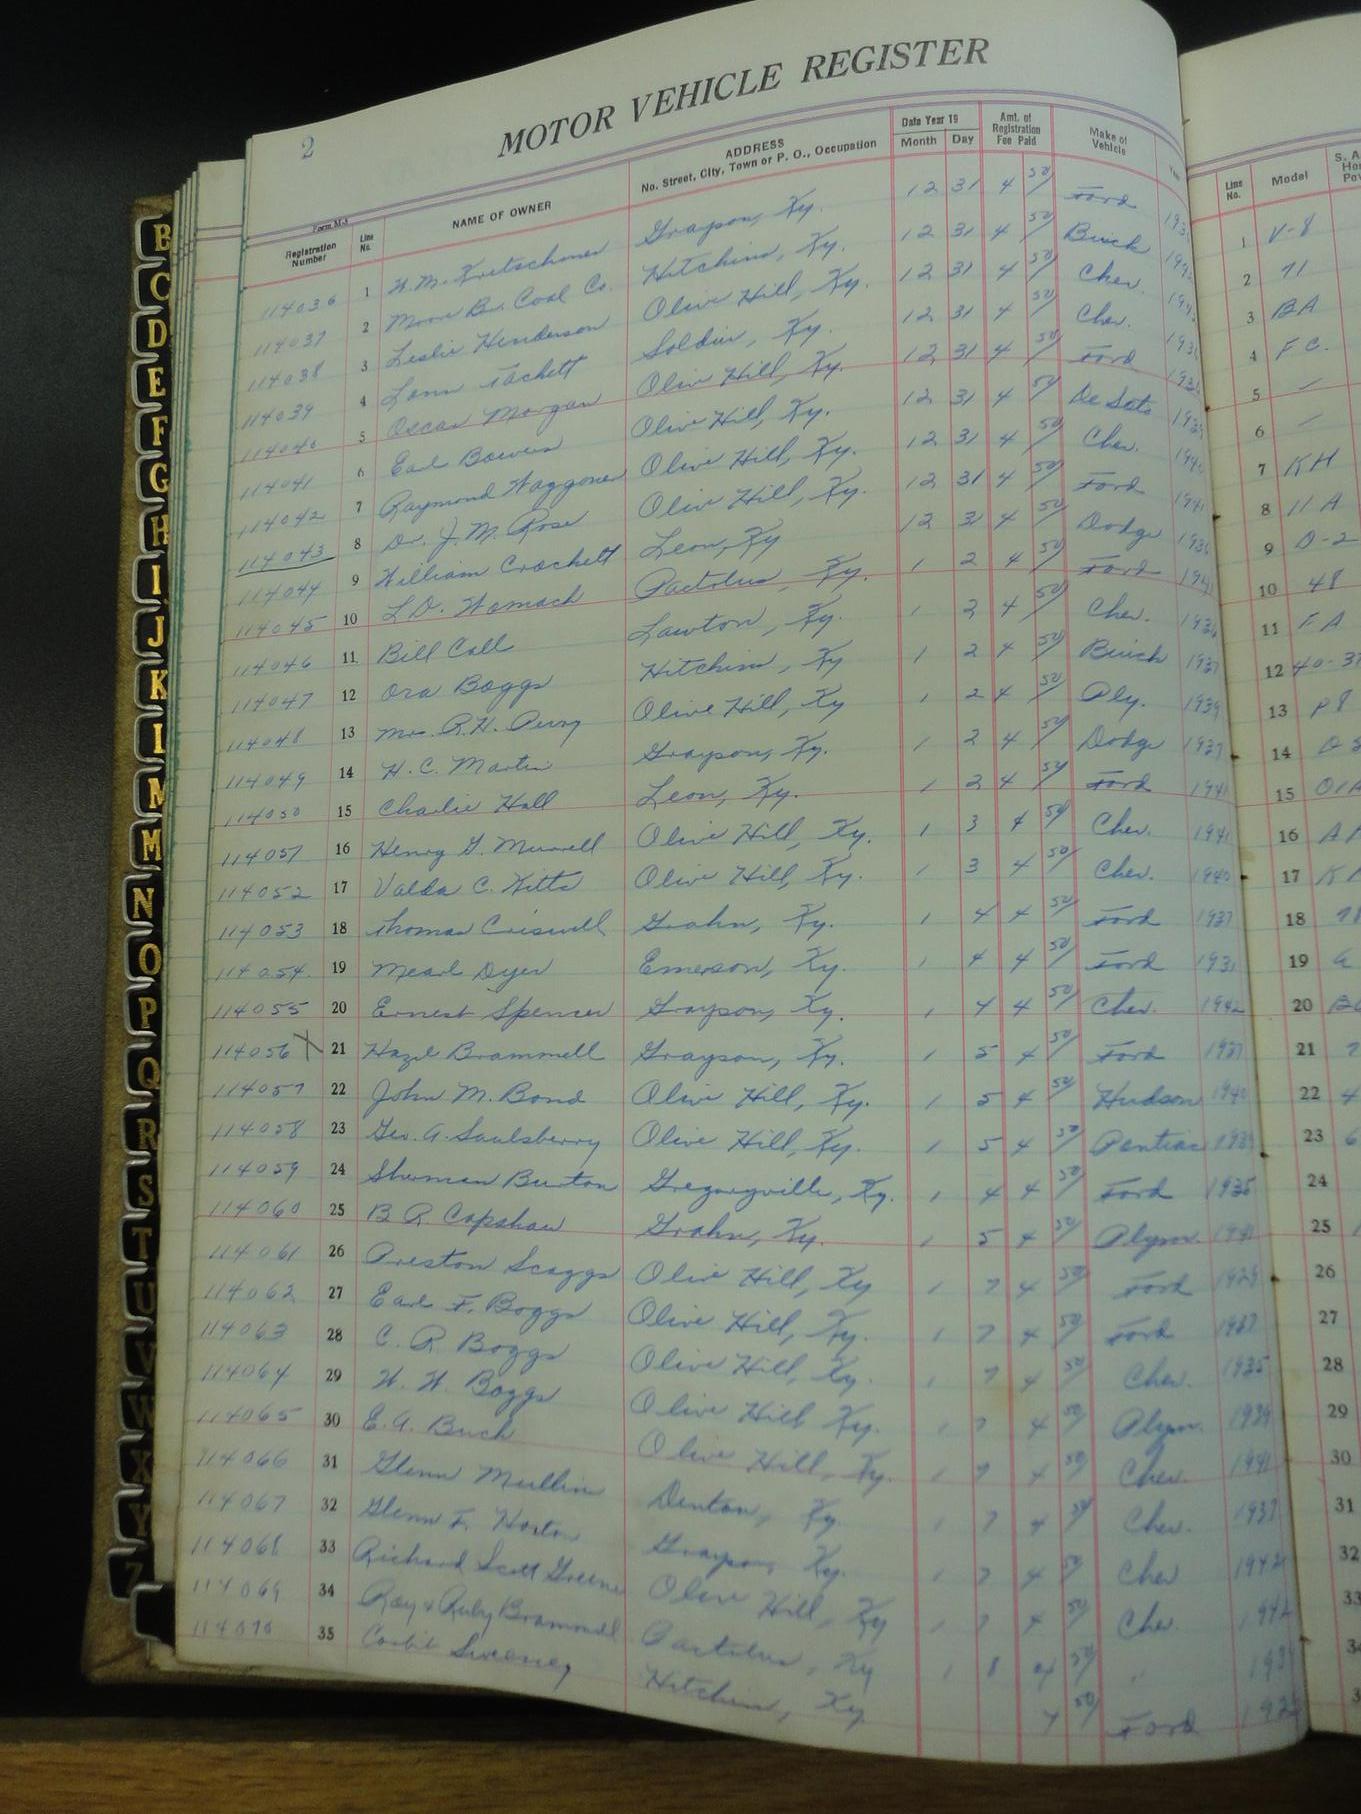 2
MOTOR VEHICLE REGISTER
Form M-3
Registration Number Line No. NAME OF OWNER ADDRESS No. Street, City, Town or P. O., Occupation Date Year 19 Month Day Amt. of Registration Fee Paid Make of Vehicle Line No. Model
114036 1 W. M. Kretschmer Grayson, Ky. 12 31 4 50 Ford V-8
114037 2 Moore Br. Coal Co. Hitchins, Ky. 12 31 4 50 Buick 2 71
114038 3 Leslie Henderson Olive Hill, Ky. 12 31 4 50 Chev. 3 BA
114039 4 Lonn Tackett Soldier, Ky. 12 31 4 50 Chev. 4 FC.
114040 5 Oscar Morgan Olive Hill, Ky. 12 31 4 50 Ford 5
114041 6 Earl Bowen Olive Hill, Ky. 12 31 4 50 De Soto 6
114042 7 Raymond Waggoner Olive Hill, Ky. 12 31 4 50 Chev. 7 KH
114043 8 Dr. J. M. Rose Olive Hill, Ky. 12 31 4 50 Ford 1941 8 11 A
114044 9 William Crockett Leon, Ky 12 31 4 50 Dodge 9 D-2
114045 10 L. D. Womack Pactolus, Ky. 1 2 4 50 Ford 10 48
114046 11 Bill Call Lawton, Ky. 1 2 4 50 Chev. 1936 11 FA
114047 12 Ora Boggs Hitchins, Ky 1 2 4 50 Buick 1937 12 40-37
114048 13 Mrs. R. H. Perry Olive Hill, Ky 1 2 4 50 Ply. 1939 13 P8
114049 14 H. C. Martin Grayson, Ky. 1 2 4 50 Dodge 1937 14
114050 15 Charlie Hall Leon, Ky. 1 2 4 50 Ford 1941 15
114051 16 Henry G. Murrell Olive Hill, Ky. 1 3 4 50 Chev. 1941 16
114052 17 Valda C. Kitts Olive Hill, Ky. 1 3 4 50 Chev. 1940 17
114053 18 Thomas Criswell Grahn, Ky. 1 4 4 50 Ford 1937 18
114054 19 Mearl Dyer Emerson, Ky. 1 4 4 50 Ford 1931 19
114055 20 Ernest Spencer Grayson, Ky. 1 4 4 50 Chev. 1942 20
114056 X 21 Hazel Brammell Grayson, Ky. 1 5 4 50 Ford 1937 21
114057 22 John M. Bond Olive Hill, Ky. 1 5 4 50 Hudson 1940 22
114058 23 Geo. A. Saulsberry Olive Hill, Ky. 1 5 4 50 Pontiac 1939 23
114059 24 Sherman Burton Gregoryville, Ky. 1 4 4 50 Ford 1935 24
114060 25 B R Capshaw Grahn, Ky. 1 5 4 50 Plym. 1941 25
114061 26 Preston Scaggs Olive Hill, Ky 1 7 4 50 Ford 1929 26
114062 27 Earl F. Boggs Olive Hill, Ky. 1 7 4 50 Ford 1937 27
114063 28 C. R. Boggs Olive Hill, Ky. 1 7 4 50 Chev. 1935 28
114064 29 W. W. Boggs Olive Hill, Ky. 1 7 4 50 Plym. 1939 29
114065 30 E. A. Buck Olive Hill, Ky. 1 7 4 50 Chev. 1941 30
114066 31 Glenn Mullins Denton, Ky. 1 7 4 50 Chev. 1937 31
114067 32 Glenn F. Horton Grayson, Ky. 1 7 4 50 Chev 1942 32
114068 33 Richard Scott Greene Olive Hill, Ky 1 7 4 50 Chev. 33
114069 34 Ray & Ruby Brammell Pactolus, Ky 1 8 4 50
114070 35 Corbit Sweeney Hitchins, Ky 4 50 Ford
B
C
D
E
F
G
H
I
J
K
M
M
N
O
P
Q
R
S
T
U
V
W
X
Y
Z